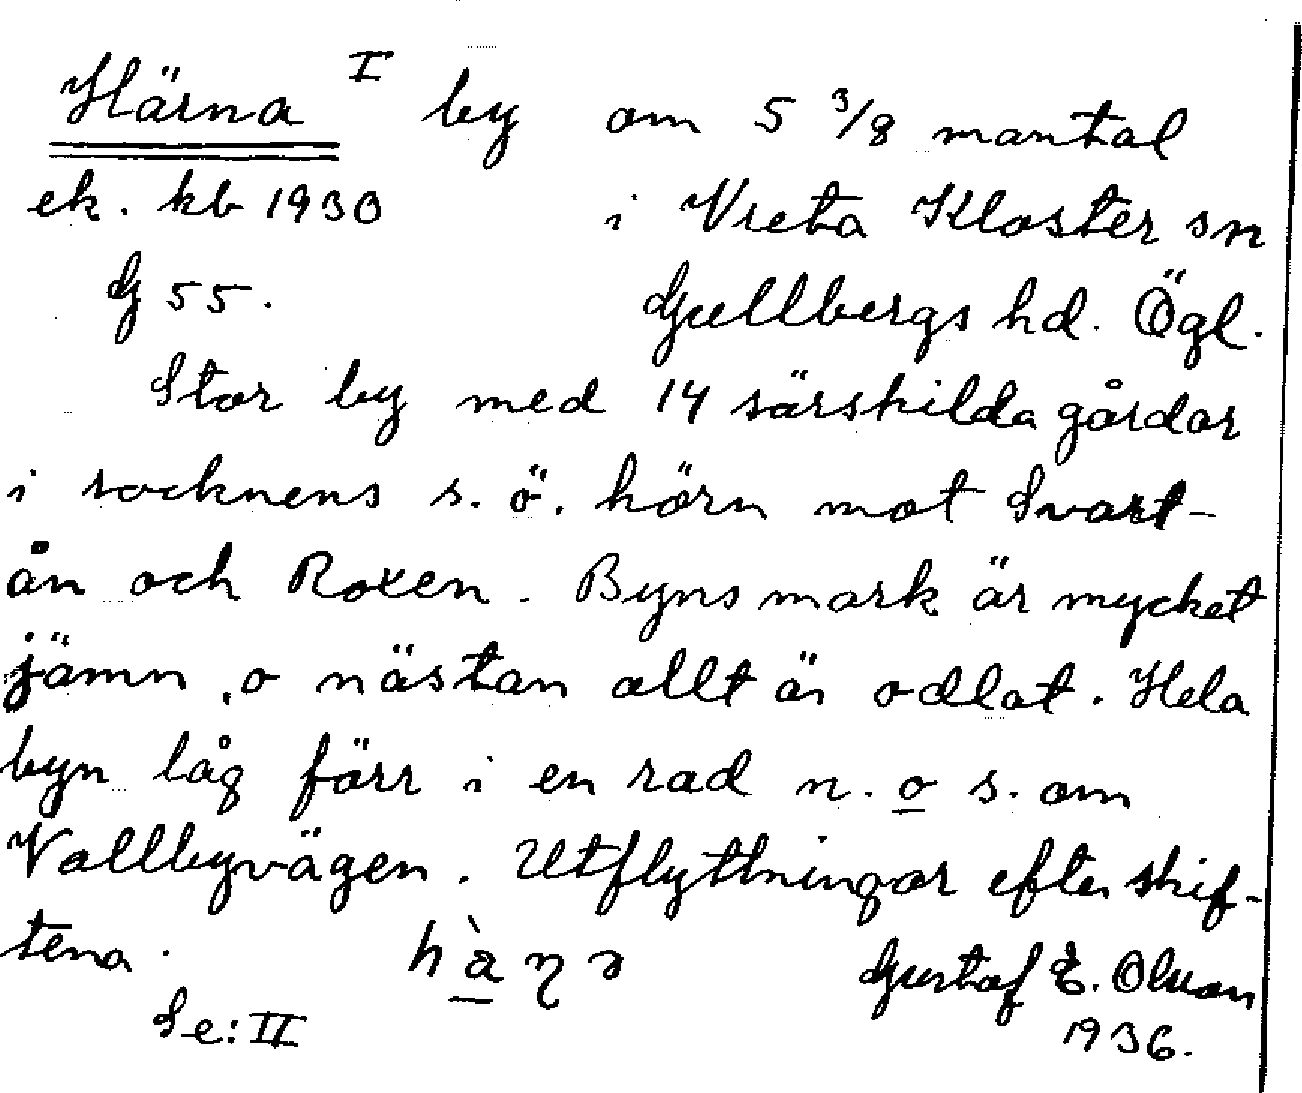 Härna I by om 5 3/8 mantal
ek. kb 1930 i Vreta Kloster sn
G 55. Gullbergs hd. Ögl.
Stor by med 14 särskilda gårdar
i socknens s. ö. hörn mot Svart-
ån och Roxen. Byns mark är mycket
jämn, o nästan allt är odlat. Hela
byn låg förr i en rad n. o s. om
Vallbyvägen. Utflyttningar efter skif-
tena. Gustaf E. Olsson
Se: II 1936.